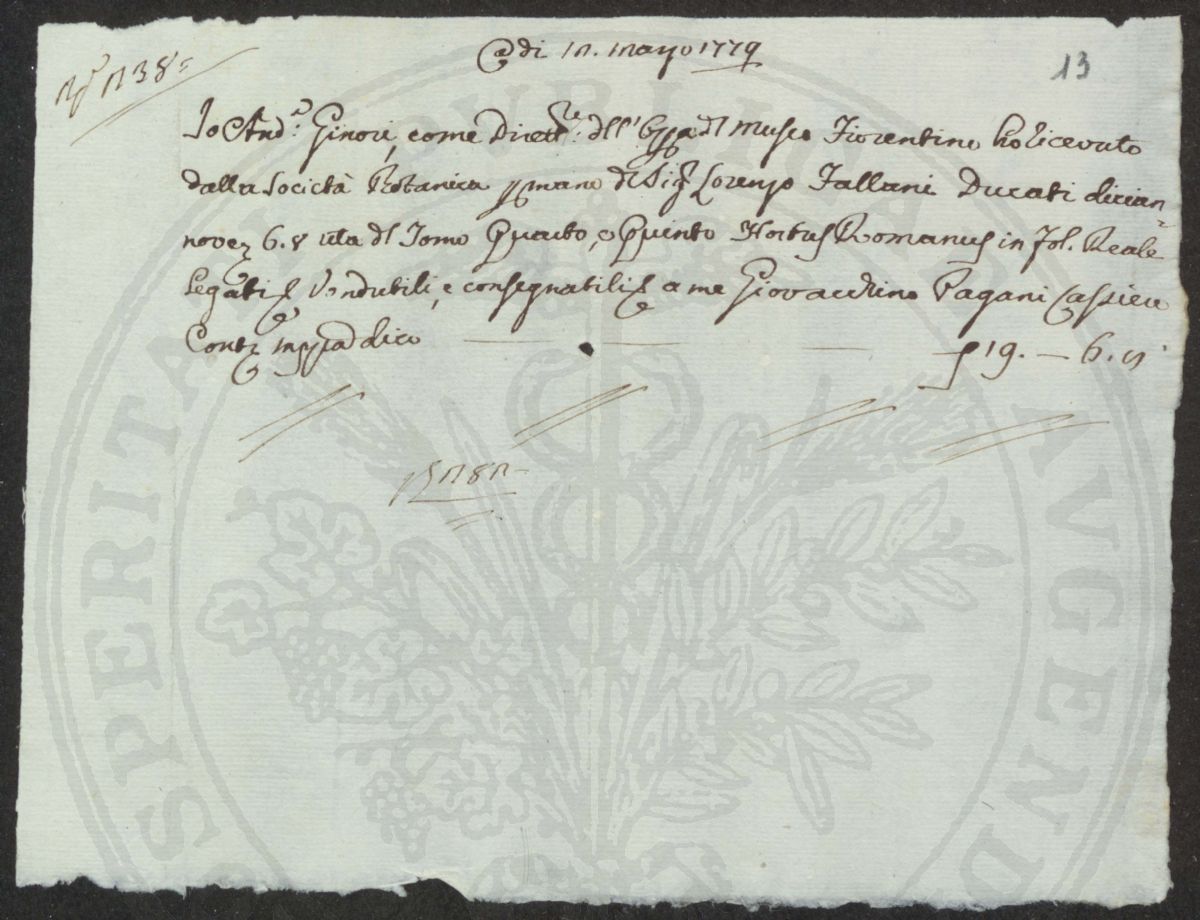 13
Adi 12. Maggo 1779
Io And.ª Ginori, come Dirett.re dell' del Museo Fiorentino ho ricevuto
dalla Società Botanica mano del Sig.r Lorenzo Fallani Ducati dician=
nove 6. 8 del Tomo Quarto, e Quinto Hortus Romanus in fol. Reale
Legati Vendutili, e consegnatili a me Giovacchino Pagani Cassiere
dico — — — 19. — 6.
SPERITATI PVBLICAE AVGEND